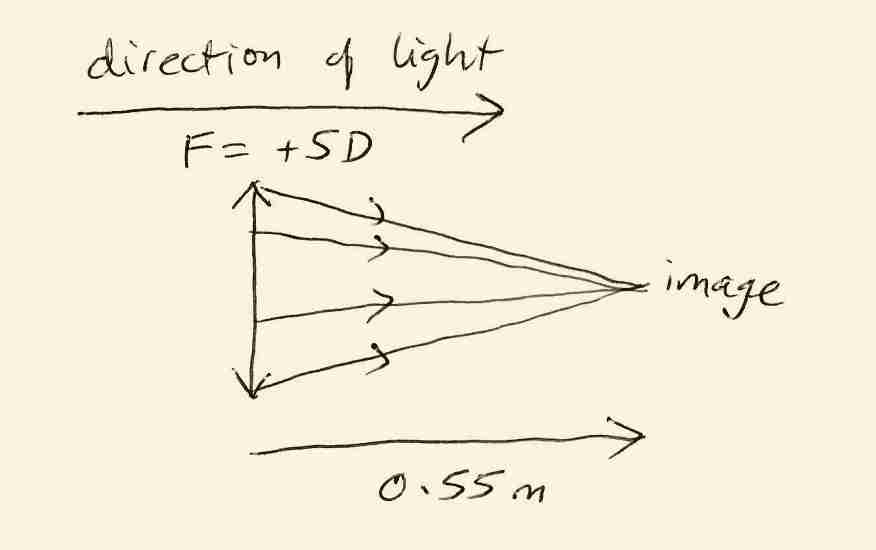 direction of light
F = +5D
image
0.55m